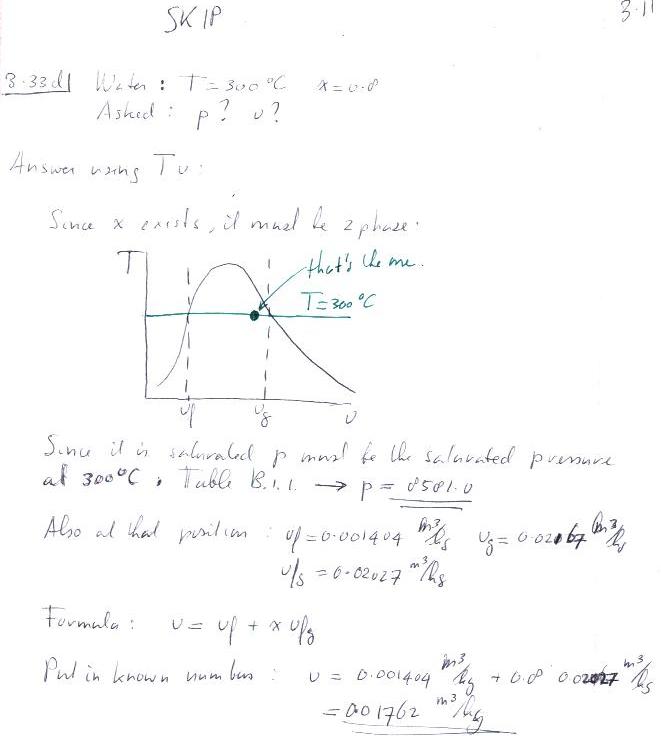 SKIP
3.11
3.33d Water : T = 300 °C x = 0.8
Asked : p? v?
Answer using Tv :
Since x exists, it must be 2 phase.
T
that's the one..
T = 300 °C
vf vg v
Since it is saturated p must be the saturated pressure
at 300 °C. Table B.1.1. → p = 8581.0
Also at that position : vf = 0.001404 m³/kg vg = 0.02167 m³/kg
vfg = 0.02027 m³/kg
Formula : v = vf + x vfg
Put in known numbers : v = 0.001404 m³/kg + 0.8 0.02027 m³/kg
= 0.01762 m³/kg